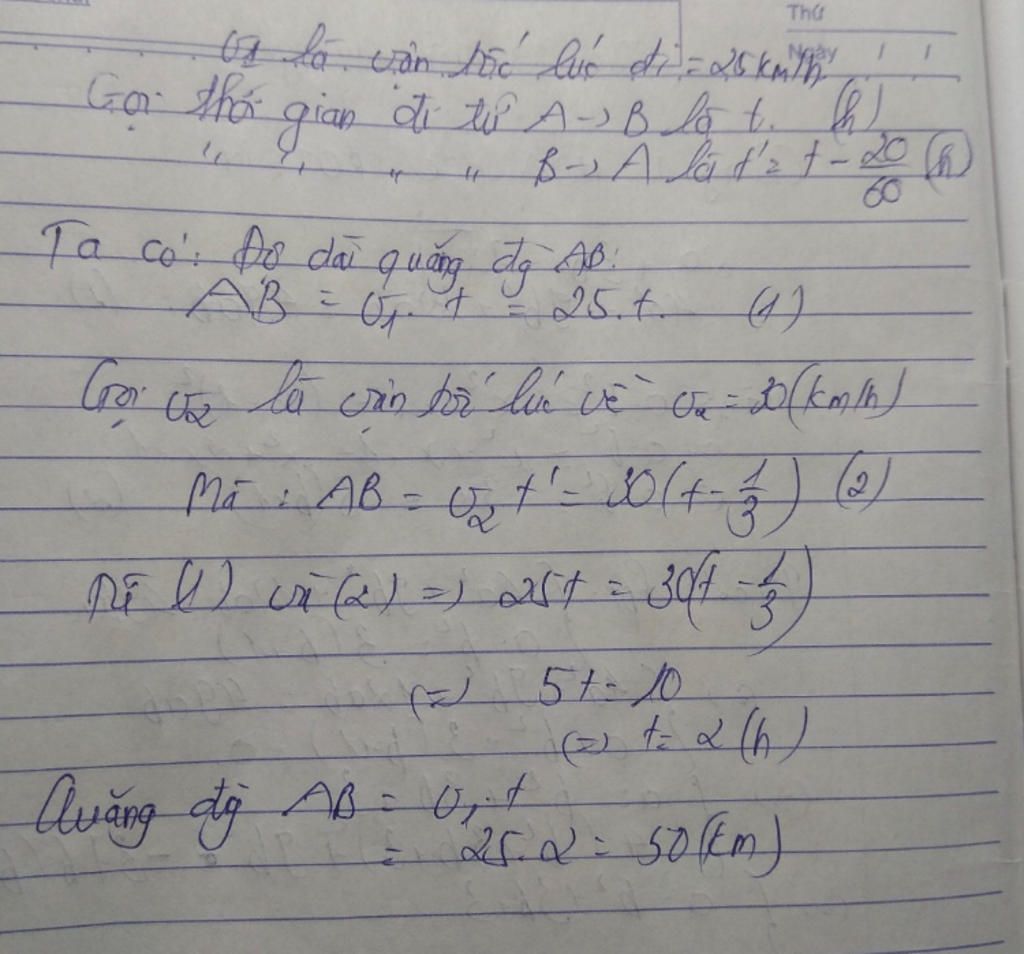 Thứ
Ngày
v1 là vận tốc lúc đi = 25 km/h
Gọi thời gian đi từ A -> B là t. (h)
" " " " B -> A là t' = t - 20/60 (h)
Ta có: Độ dài quãng đg AB:
AB = v1. t = 25. t. (1)
Gọi v2 là vận tốc lúc về v2 = 30 (km/h)
Mà : AB = v2 t' = 30(t - 1/3) (2)
Từ (1) và (2) => 25t = 30(t - 1/3)
(=) 5t = 10
(=) t = 2 (h)
Quãng đg AB = v1. t
= 25. 2 = 50 (km)